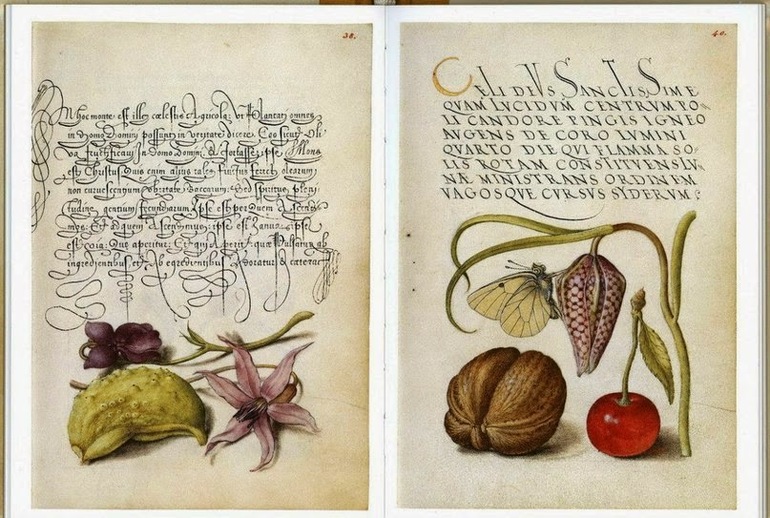 38.
In hoc monte est ille cœlestis Agricola, Vt Plantati omnes
in Domo Domini possunt in veritate dicere. Ego sicut Oli
va fructificavi in Domo Domini, & fortasse ipse Mons
est Christus. Quis enim alius tales fructus feret, olearum
non curvescentium vbertate Baccarum, sed spiritus pleni
tudine gentium fecundarum. Ipse est per quem Ascendi
mus: Et quem Ascendimus; ipse est Ianua; ipse
est via: Aperitur: Et qui Aperit: quæ Pulsatur ab
ingredientibus et Ab egredientibus Adoratur & cætera
40.
CELI DEVS SANCTISSIME
QVAM LVCIDVM CENTRVM PO=
LI CANDORE PINGIS IGNEO
AVGENS DECORO LVMINI
QVARTO DIE QVI FLAMMA SO=
LIS ROTAM CONSTITVENS LV
NÆ MINISTRANS ORDINEM
VAGOSQVE CVRSVS SYDERVM: